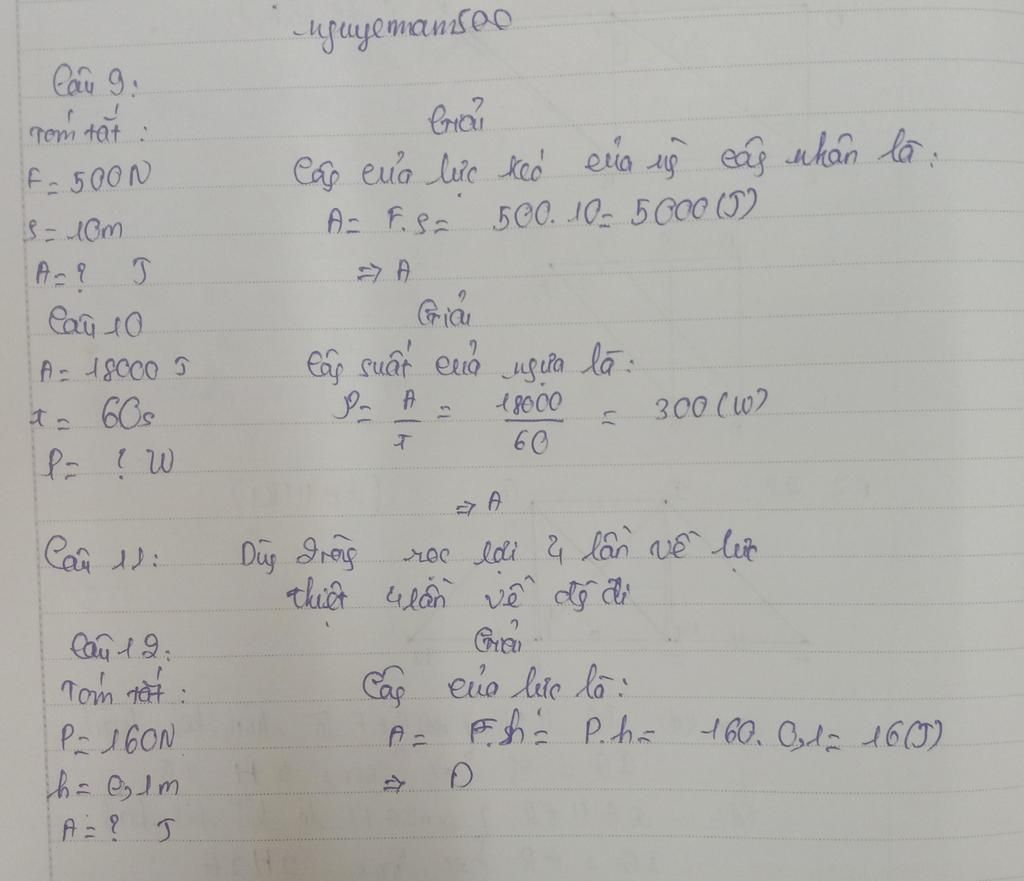 nguyenam500
Câu 9:
Tóm tắt : Giải
F = 500N Công của lực kéo của ng công nhân là:
s = 10m A = F.s = 500.10 = 5000 (J)
A = ? J => A
Câu 10 Giải
A = 18000 J Công suất của ngựa là:
t = 60s P = A/t = 18000/60 = 300 (W)
P = ? W
=> A
Câu 11: Dùng ròng rọc lợi 4 lần về lực
thiệt 4 lần về đg đi
Câu 12: Giải
Tóm tắt : Công của lực là:
P = 160N A = F.h = P.h = 160. 0,1 = 16 (J)
h = 0,1m => D
A = ? J